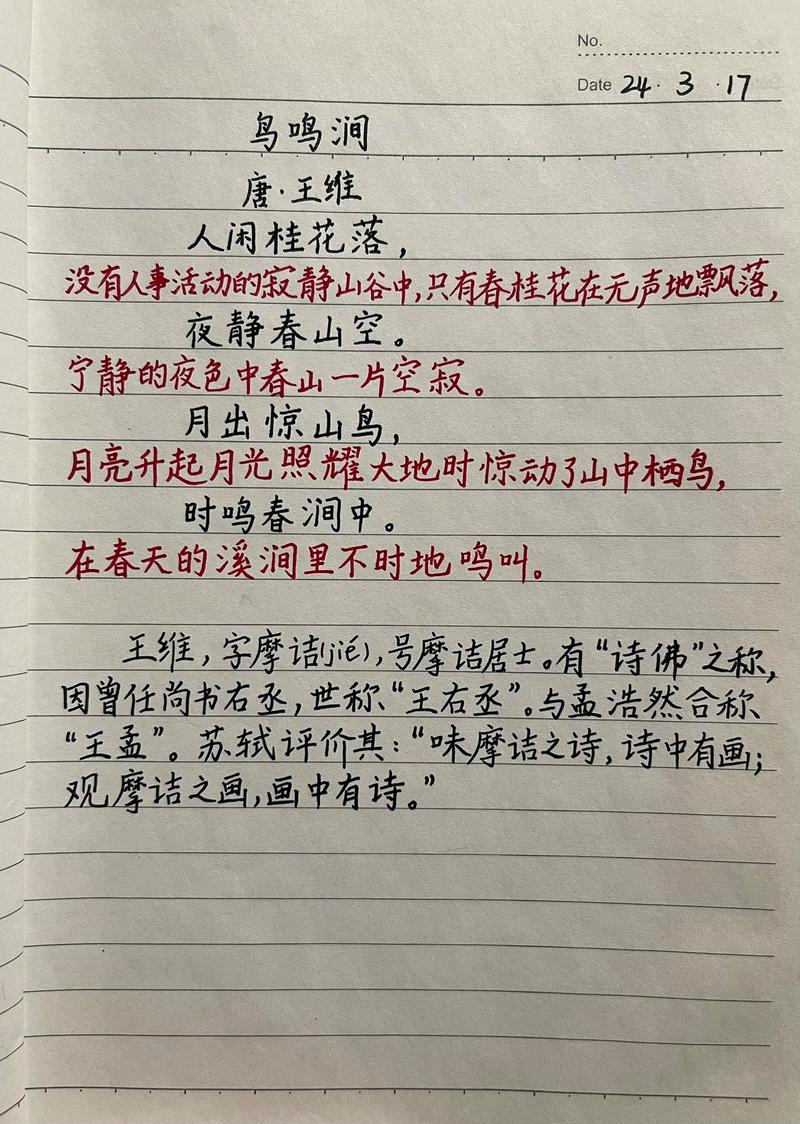 No.
Date 24·3·17
鸟鸣涧
唐·王维
人闲桂花落，
没有人事活动的寂静山谷中，只有春桂花在无声地飘落，
夜静春山空。
宁静的夜色中春山一片空寂。
月出惊山鸟，
月亮升起月光照耀大地时惊动了山中栖鸟，
时鸣春涧中。
在春天的溪涧里不时地鸣叫。
王维，字摩诘(jié)，号摩诘居士。有“诗佛”之称，
因曾任尚书右丞，世称“王右丞”。与孟浩然合称
“王孟”。苏轼评价其：“味摩诘之诗，诗中有画；
观摩诘之画，画中有诗。”